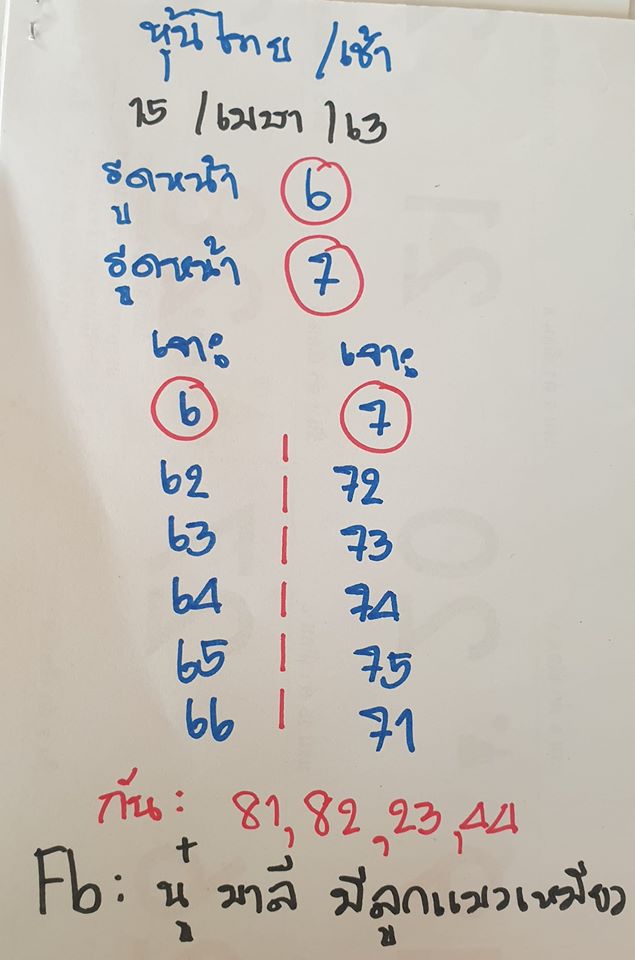 หุ้นไทย /เช้า
15 /เมษา /63
รูดหน้า 6
รูดหน้า 7
เจาะ เจาะ
6 7
62 72
63 73
64 74
65 75
66 71
กัน: 81,82,23,44
Fb: นู๋ มาลี มีลูกแมวเหมียว